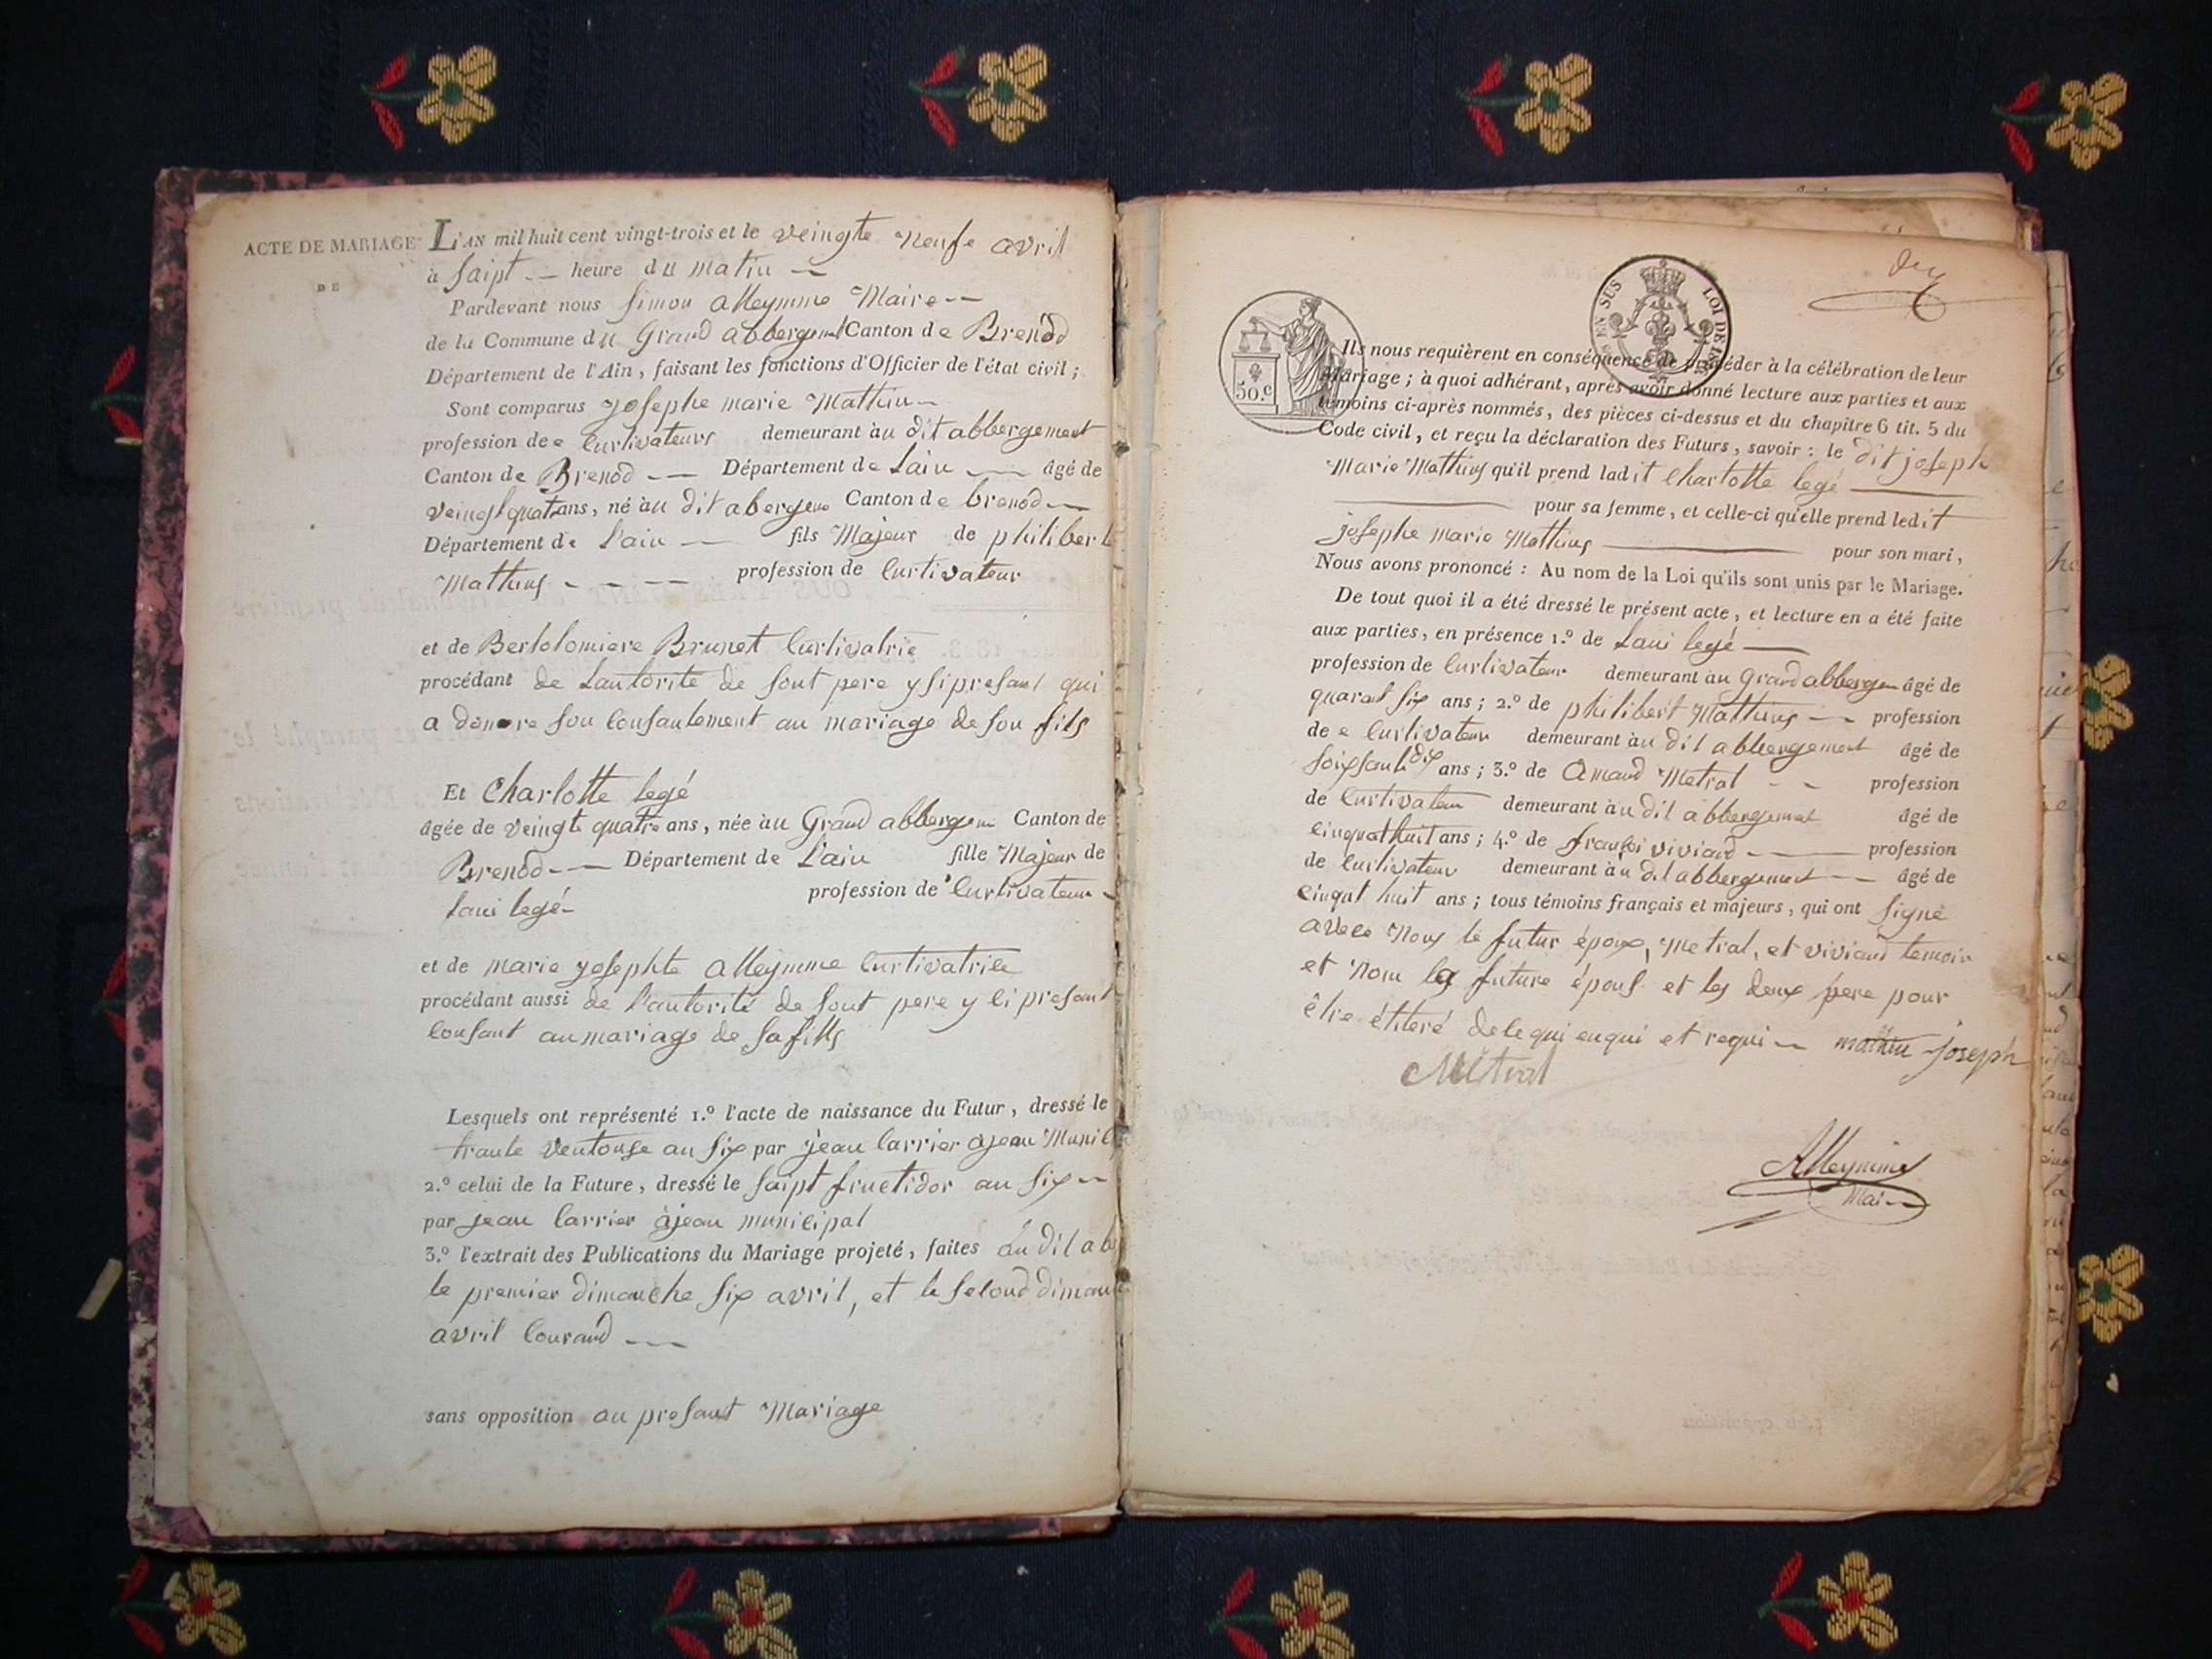 ACTE DE MARIAGE
DE
L'AN mil huit cent vingt-trois et le veingte neufe avril
à saipt heure du matin
Pardevant nous simon alleymme Maire
de la Commune du Grand abbergem Canton de Brenod
Département de l'Ain, faisant les fonctions d'Officier de l'état civil;
Sont comparus josephe marie Mathius
profession de Curtivateurs demeurant àu dit abbergement
Canton de Brenod Département de Lain âgé de
veingt quatr ans, né àu dit abergem Canton de brenod
Département de L'ain fils Majeur de philibert
Mathius profession de Curtivateur
et de Bertolomiere Brunet Curtivatrie
procédant de Lautorite de sont pere y si presant qui
a donere son Consantement au mariage de son fils
Et Charlotte legé
âgée de veingte quatre ans, née àu Grand abbergem Canton de
Brenod Département de L'ain fille Majeur de
Laui legé profession de Curtivateur
et de marie josephte alleymme Curtivatrice
procédant aussi de l'autorité de sont pere y ci presant
Consant au mariage de sa fills
Lesquels ont représenté 1.º l'acte de naissance du Futur, dressé le
traute ventouse an six par jean Carrier ajean Munic
2.º celui de la Future, dressé le saipt fructidor an six
par jean Carrier àjean municipal
3.º l'extrait des Publications du Mariage projeté, faites àu dit abe
le premier dimanche six avril, et le second diman
avril Courand
sans opposition au presant Mariage
50.c
EN SUS
LOI DE
Ils nous requièrent en conséquence de procéder à la célébration de leur
Mariage; à quoi adhérant, après avoir donné lecture aux parties et aux
témoins ci-après nommés, des pièces ci-dessus et du chapitre 6 tit. 5 du
Code civil, et reçu la déclaration des Futurs, savoir: le dit joseph
Marie Mathius qu'il prend ladit Charlotte legé
pour sa femme, et celle-ci qu'elle prend ledit
josephe marie Mathius pour son mari,
Nous avons prononcé: Au nom de la Loi qu'ils sont unis par le Mariage.
De tout quoi il a été dressé le présent acte, et lecture en a été faite
aux parties, en présence 1.º de Laui legé
profession de Curtivateur demeurant àu Grand abbergem âgé de
quarant six ans; 2.º de philibert Mathius profession
de Curtivateur demeurant àu dit abbergement âgé de
soixsante dix ans; 3.º de Amand Metral profession
de Curtivateur demeurant àu dit abbergement âgé de
cinquat huit ans; 4.º de francoi viviand profession
de Curtivateur demeurant àu dit abbergement âgé de
cinqat huit ans; tous témoins français et majeurs, qui ont signé
avece nous le futur époux, Metral, et viviand temoin
et nom la future épous et les deux pere pour
être étiteré de ce qui enqui et requi mathiu joseph
Métral
Alleymme
Mai